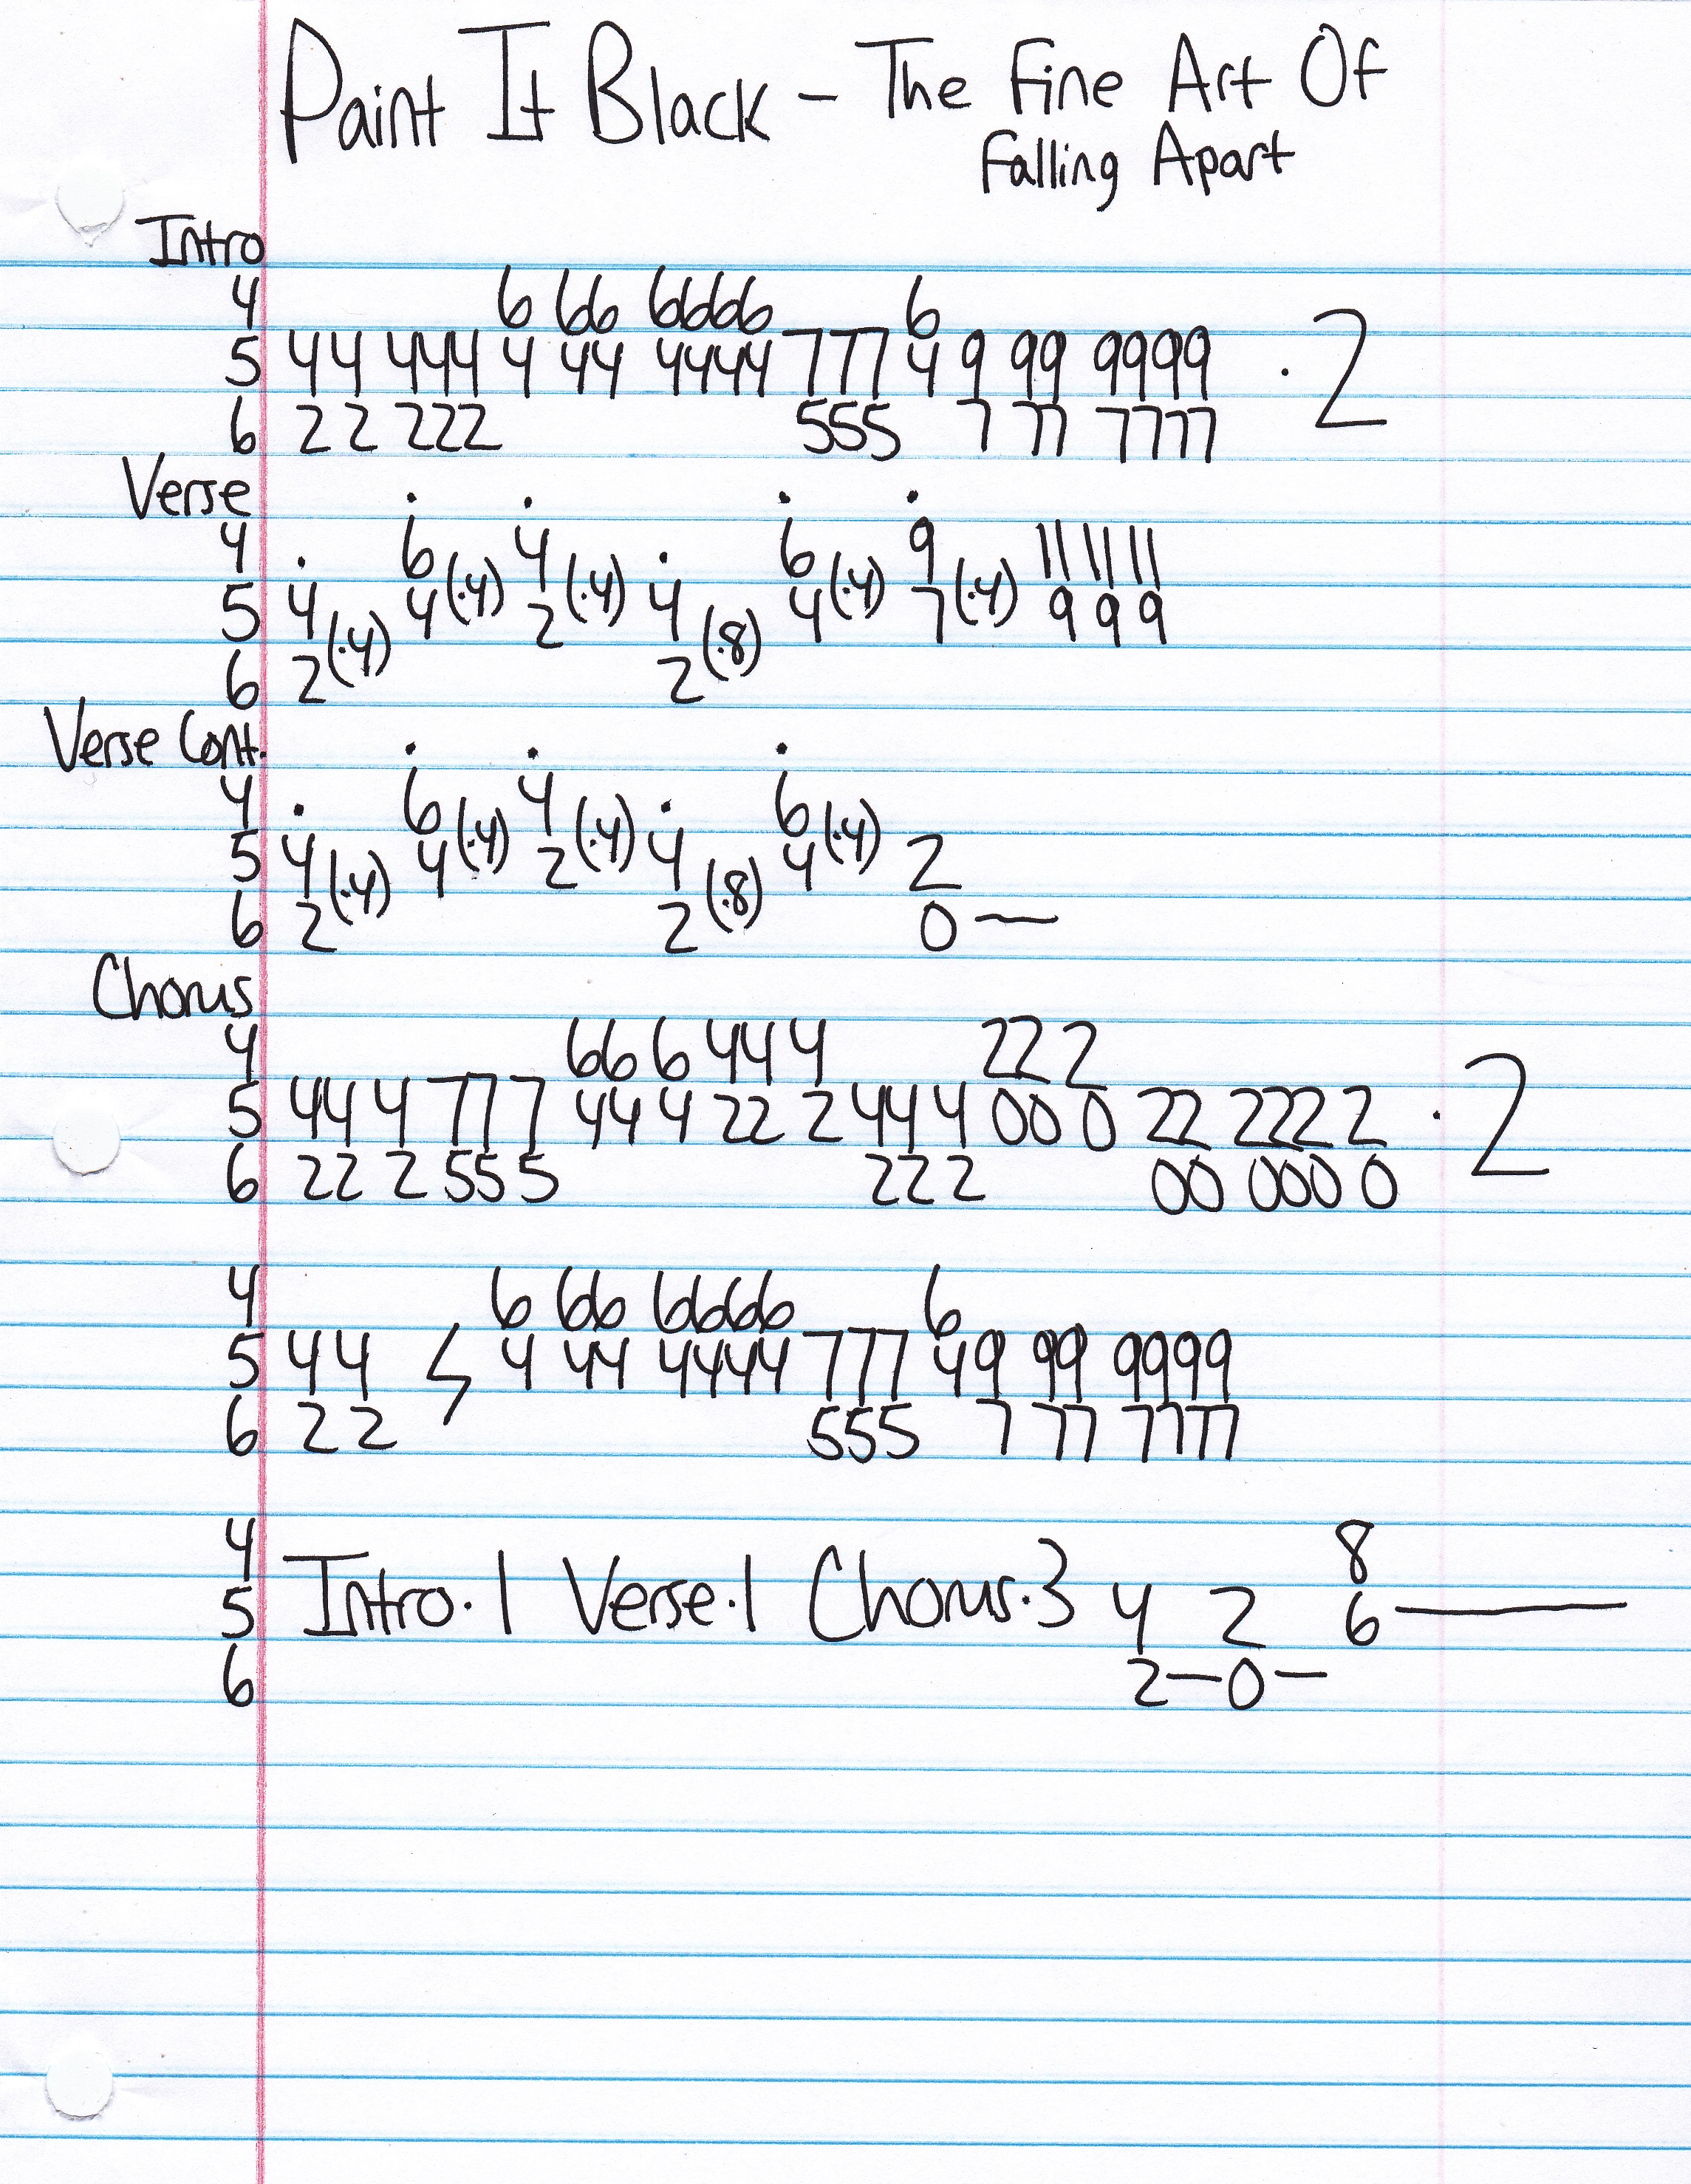 Paint It Black - The Fine Art Of
Falling Apart
Intro
4 6 66 6666 6
5 44 444 4 44 4444 777 4 9 99 9999 · 2
6 22 222 555 7 77 7777
Verse
4 · 6 4 · 6 9 11 11 11
5 4 4 (·4) 2 (·4) 4 4 (·4) 7 (·4) 9 9 9
6 2 (·4) 2 (·8)
Verse Cont.
4 · 6 4 · 6
5 4 4 (·4) 2 (·4) 4 4 (·4) 2
6 2 (·4) 2 (·8) 0 —
Chorus
4 66 6 44 4 22 2
5 44 4 77 7 44 4 22 2 44 4 00 0 22 222 2 · 2
6 22 2 55 5 22 2 00 000 0
4 6 66 6666 6
5 44 4 44 4444 777 4 9 99 9999
6 22 555 7 77 7777
4 8
5 Intro·1 Verse·1 Chorus·3 4 2 6 —
6 2 — 0 —